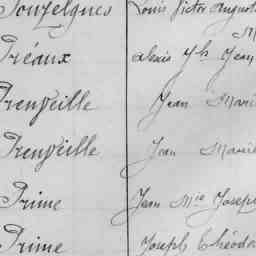 Pouzelgues Louis Victor August
M
Préaux alexis Jh Jean
Prenveille Jean Marie
Prenveille Jean Marie
Prime Jean Mie Joseph
Prime Joseph Théodor